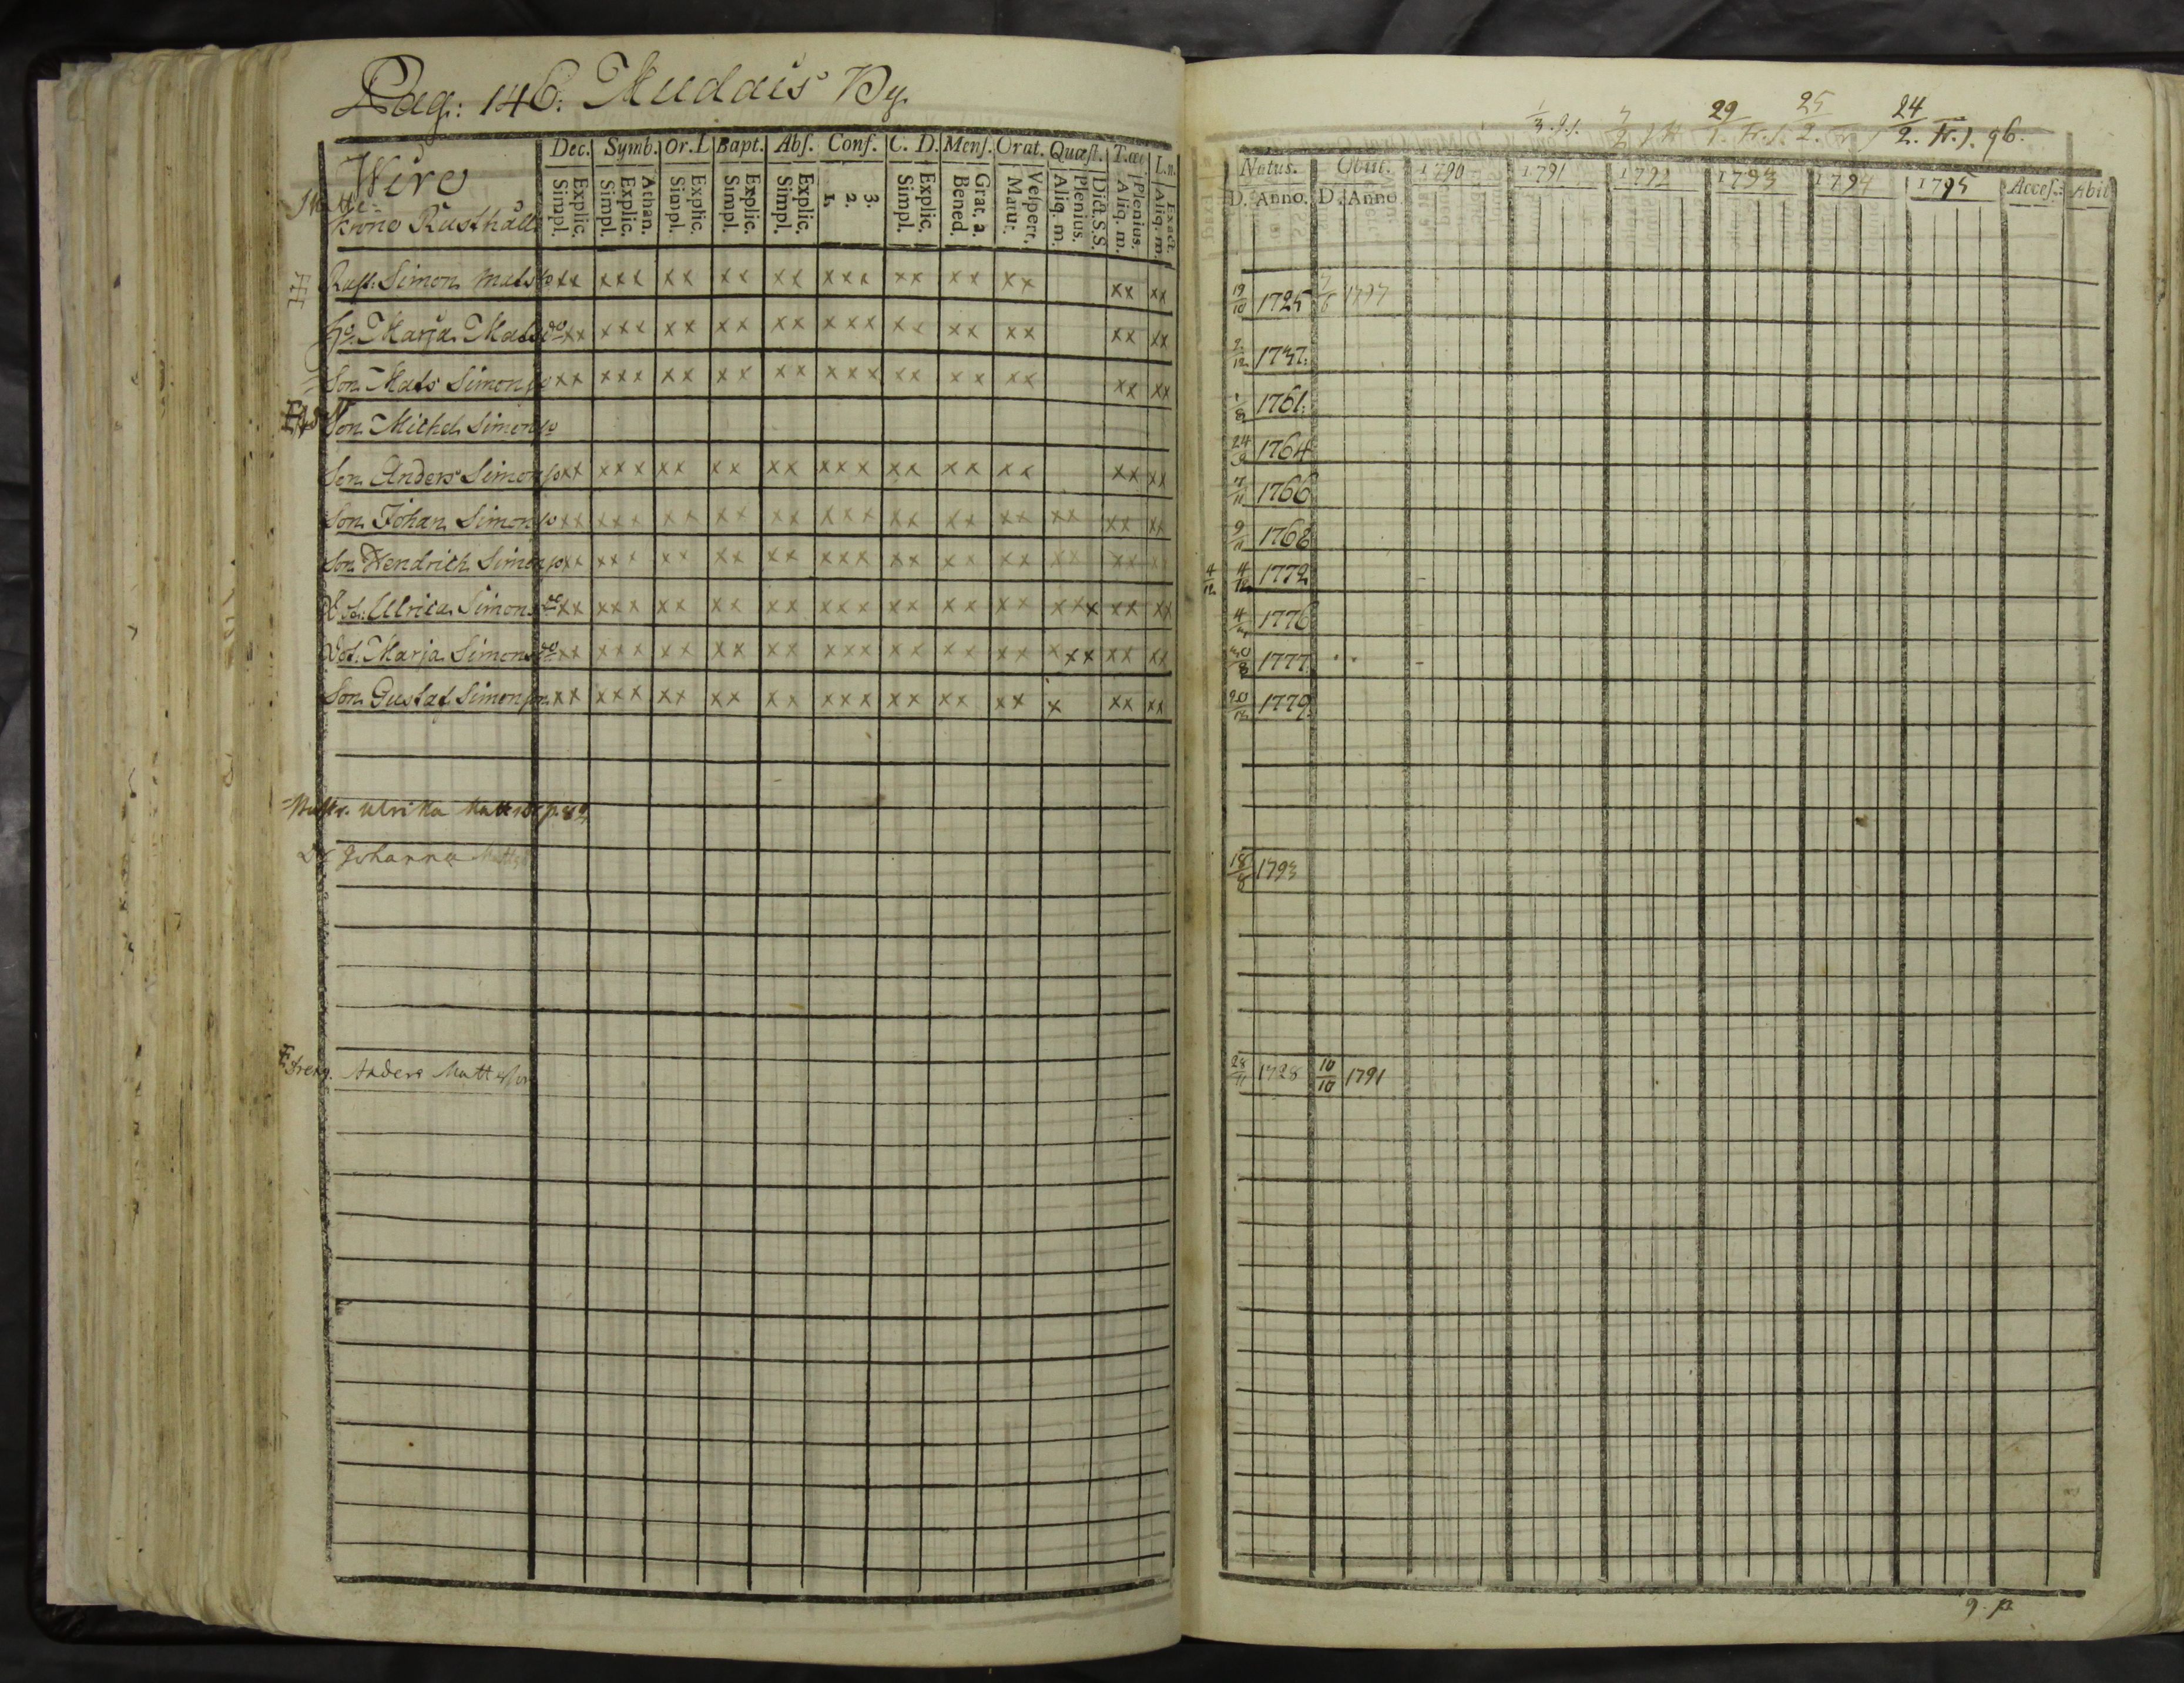 Pag: 146. Mudais By.
Dec. Symb. Or. L Bapt. Abſ. Conf. C. D. Menſ. Orat. Quæſt. T.œc L.n.
Simpl. Explic. Simpl. Explic. Athan. Simpl. Explic. Simpl. Explic. Simpl. Explic. 1. 2. 3. Simpl. Explic. Bened. Grat. a. Matut. Veſpert. Aliq. m. Plenius. Dict. S.S. Aliq. m. Plenius. Aliq. m. Exact.
Wiro
Krono Rusthåll
Rust: Simon Mats so xx xxx xx xx xx xxx xx xx xx xx xx
Ho. Marja Mats do xx xxx xx xx xx xxx xx xx xx xx xx
Son Mats Simon so xx xxx xx xx xx xxx xx xx xx xx xx
Son Michel Simon so
Son Anders Simon so xx xxx xx xx xx xxx xx xx xx xx xx
Son Johan Simon so xx xxx xx xx xx xxx xx xx xx xx xx xx
Son Hendrich Simon so xx xxx xx xx xx xxx xx xx xx xx xx xx
Dot: Ulrica Simons do xx xxx xx xx xx xxx xx xx xx xxx xx xx
Dot. Marja Simons do xx xxx xx xx xx xxx xx xx xx xxx xx xx
Son Gustaf Simonson xx xxx xx xx xx xxx xx xx xx x xx xx
Ulrika Matts dr p. 82
Dr Johanna Matts
Dreng. Anders Mattsson
29/1. Fr. s. 25/2. 24/2. Fr. s. 96.
Natus. Obiit. 1790 1791 1792 1793 1794 1795 Acceſ. Abit
D. Anno. D. Anno
19/10 1725 1797
2/12 1737.
1/8 1761.
24/9 1764
1766
9/11 1768
4/12 4/12 1772
1776
30/8 1777.
20/12 1779.
18/8 1793
28/11 1728 10/10 1791
9. p